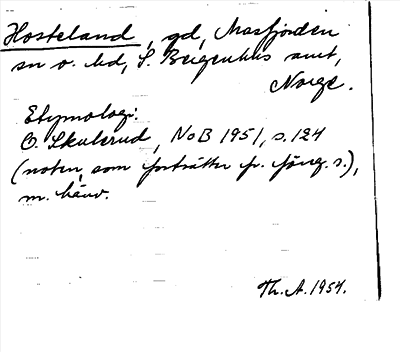 Hosteland, gd, Masfjorden
sn o. hd, S. Bergenhus amt,
Norge.
Etymologi:
O. Skulerud, NoB 1951, s. 124
(noten, som fortsätter fr. föreg. s.),
m. hänv.
Th. A. 1954.